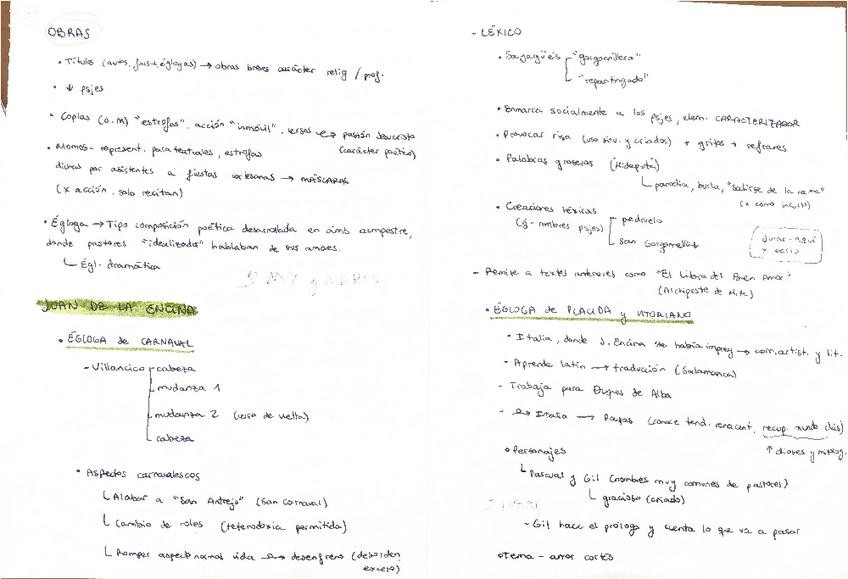 OBRAS
• Título (aves, farsas, églogas) → obras breves carácter relig / prof.
• ↓ psjes
• Coplas (O.M) "estrofas", acción "inmóvil", versos → pasión Jesucristo
(carácter poético)
• Momos - represent. parateatrales, estrofas
dichas por asistentes a fiestas cortesanas → MÁSCARAS
(x acción, solo recitan)
• Égloga → Tipo composición poética desarrollada en ámb campestre,
donde pastores "idealizados" hablaban de sus amores.
└ Égl. dramática
JUAN DE LA ENCINA
• ÉGLOGA de CARNAVAL
- Villancico cabeza
mudanza 1
mudanza 2 (verso de vuelta)
cabeza
• Aspectos carnavalescos
└ Alabar a "San Antrejo" (San Carnaval)
└ Cambio de roles (heterodoxia permitida)
└ Romper aspecto normal vida → desenfreno (desorden,
exceso)
- LÉXICO
• Sayagués "gorgomillera"
"repantingado"
• Enmarca socialmente a los psjes, elem. CARACTERIZADOR
• Provocar risa (uso sirv. y criados) + gritos + refranes
• Palabras groseras (Hideputa)
└ parodia, burla, "salirse de la rama"
(x como insulto)
• Creaciones léxicas
(ej - nombres psjes) pedruelo
san Gorgomellaz
- Remite a textos anteriores como "El Libro del Buen Amor"
(Archipreste de Hita)
• ÉGLOGA de PLACIDA y VITORIANO
• Italia, donde J. Encina se había impreg → corr. artíst. y lit.
- Aprende latín → traducción (Salamanca)
- Trabaja para Duques de Alba
- → Italia → Papas (conoce tend. renacent, recup. mundo clás)
↑ dioses y mitolog.
• Personajes
└ Pascual y Gil (nombres muy comunes de pastores)
└ gracioso (criado)
- Gil hace el prólogo y cuenta lo que va a pasar
• Tema - amor cortés